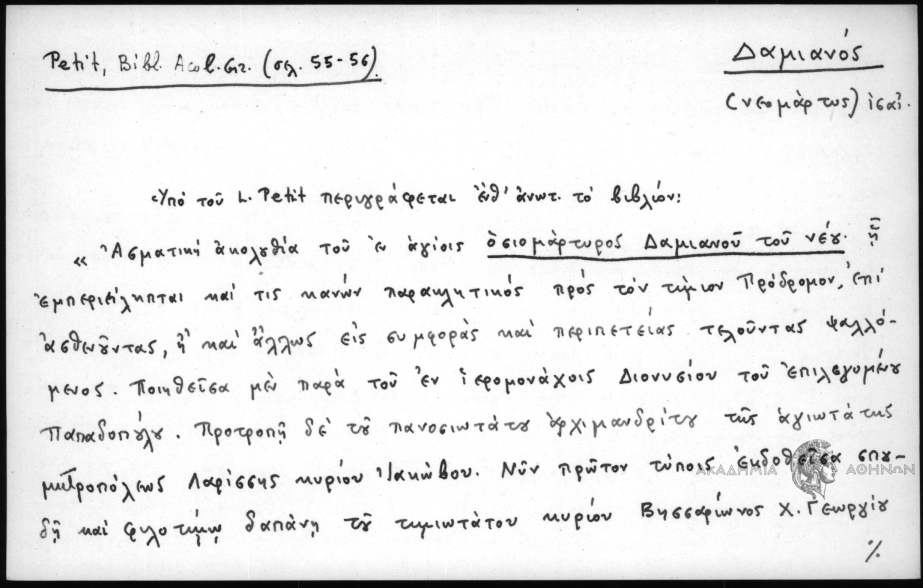 Petit, Bibl. Acol. Gr. (σελ. 55-56).
Δαμιανός
(νεομάρτυς)
Ὑπό τοῦ L. Petit περιγράφεται ἔνθ' ἀνωτ. τό βιβλίον:
« Ἀσματική ἀκολουθία τοῦ ἐν ἁγίοις ὁσιομάρτυρος Δαμιανοῦ τοῦ νέου. ᾗ
ἐμπεριείληπται καί τις κανών παρακλητικός πρός τόν τίμιον Πρόδρομον, ἐπί
ἀσθενοῦντας, ἤ καί ἄλλως εἰς συμφοράς καί περιπετείας τελοῦντας ψαλλό-
μενος. Ποιηθεῖσα μέν παρά τοῦ ἐν ἱερομονάχοις Διονυσίου τοῦ ἐπιλεγομένου
Παπαδοπούλου. Προτροπῇ δέ τοῦ πανοσιωτάτου ἀρχιμανδρίτου τῆς ἁγιωτάτης
μητροπόλεως Λαρίσσης κυρίου Ἰακώβου. Νῦν πρῶτον τύποις ἐκδοθεῖσα σπου-
δῇ καί φιλοτίμῳ δαπάνῃ τοῦ τιμιωτάτου κυρίου Βησσαρίωνος Χ. Γεωργίου
%
ΑΚΑΔΗΜΙΑ ΑΘΗΝΩΝ